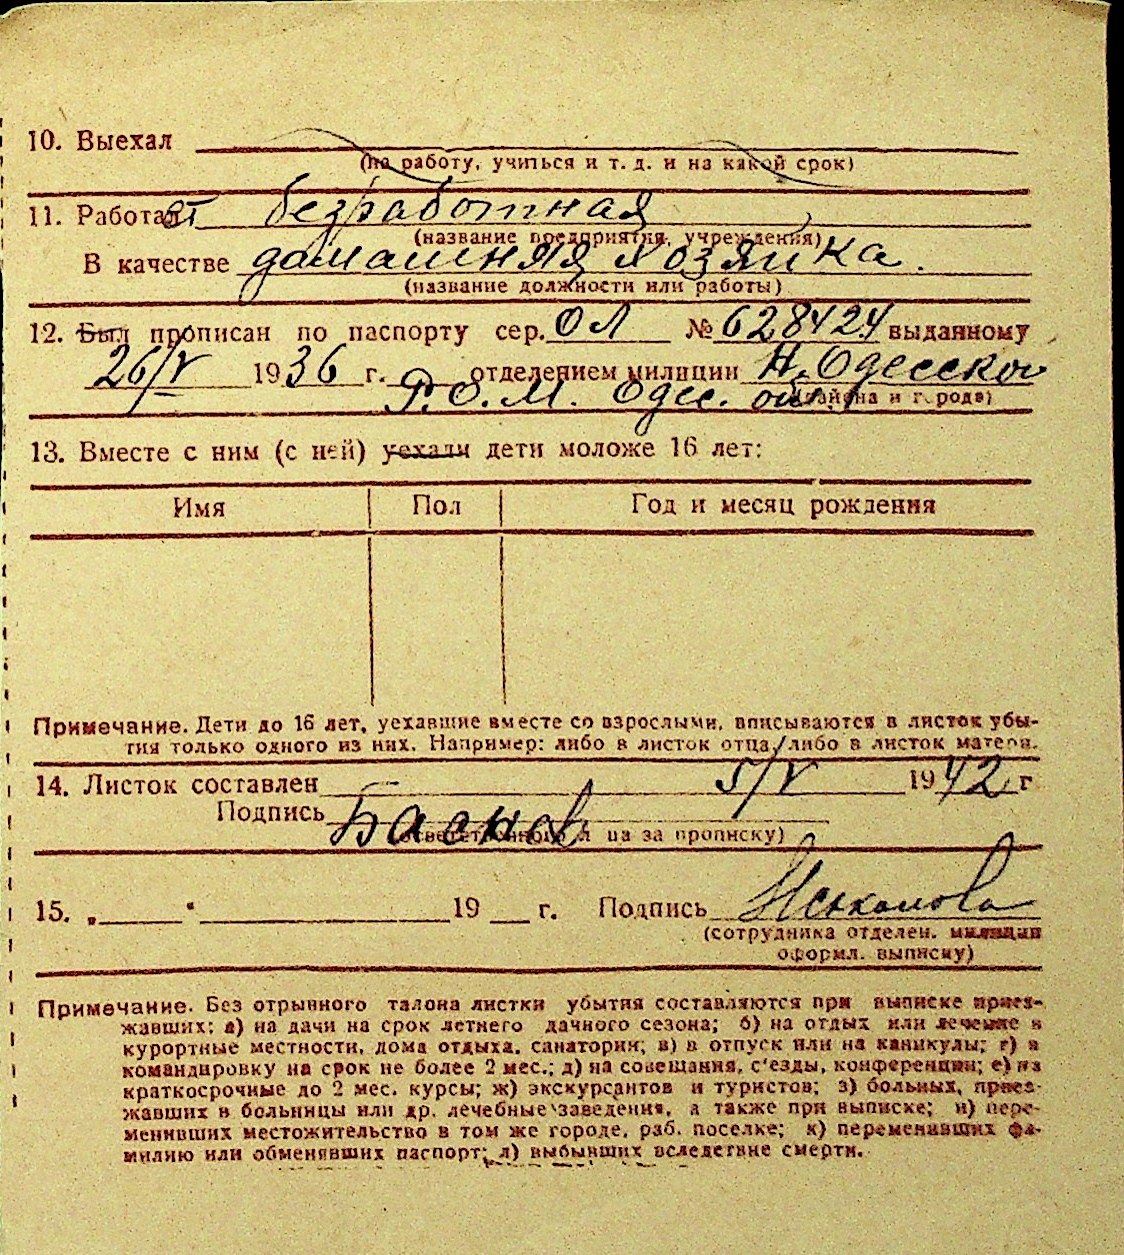 10. Выехал
(на работу, учиться и т. д. и на какой срок)
11. Работает безработная
(название предприятия, учреждения)
В качестве домашняя хозяйка.
(название должности или работы)
12. Был прописан по паспорту сер. ОЛ № 628424 выданному
26/V 1936 г. отделением милиции Н. Одесской
Р.О.М. Одес. обл. (района и города)
13. Вместе с ним (с ней) уехали дети моложе 16 лет:
Имя Пол Год и месяц рождения
Примечание. Дети до 16 лет, уехавшие вместе со взрослыми, вписываются в листок убы-
тия только одного из них. Например: либо в листок отца, либо в листок матери.
14. Листок составлен 5/V 1942 г
Подпись
(ответственного л ца за прописку)
15. „ " 19 г. Подпись
(сотрудника отделен. милиции
оформл. выписку)
Примечание. Без отрывного талона листки убытия составляются при выписке приез-
жавших: а) на дачи на срок летнего дачного сезона; б) на отдых или лечение в
курортные местности, дома отдыха, санатории; в) в отпуск или на каникулы; г) в
командировку на срок не более 2 мес.; д) на совещания, с'езды, конференции; е) на
краткосрочные до 2 мес. курсы; ж) экскурсантов и туристов; з) больных, приез-
жавших в больницы или др. лечебные заведения, а также при выписке; и) пере-
менивших местожительство в том же городе, раб. поселке; к) переменивших фа-
милию или обменявших паспорт; л) выбывших вследствие смерти.